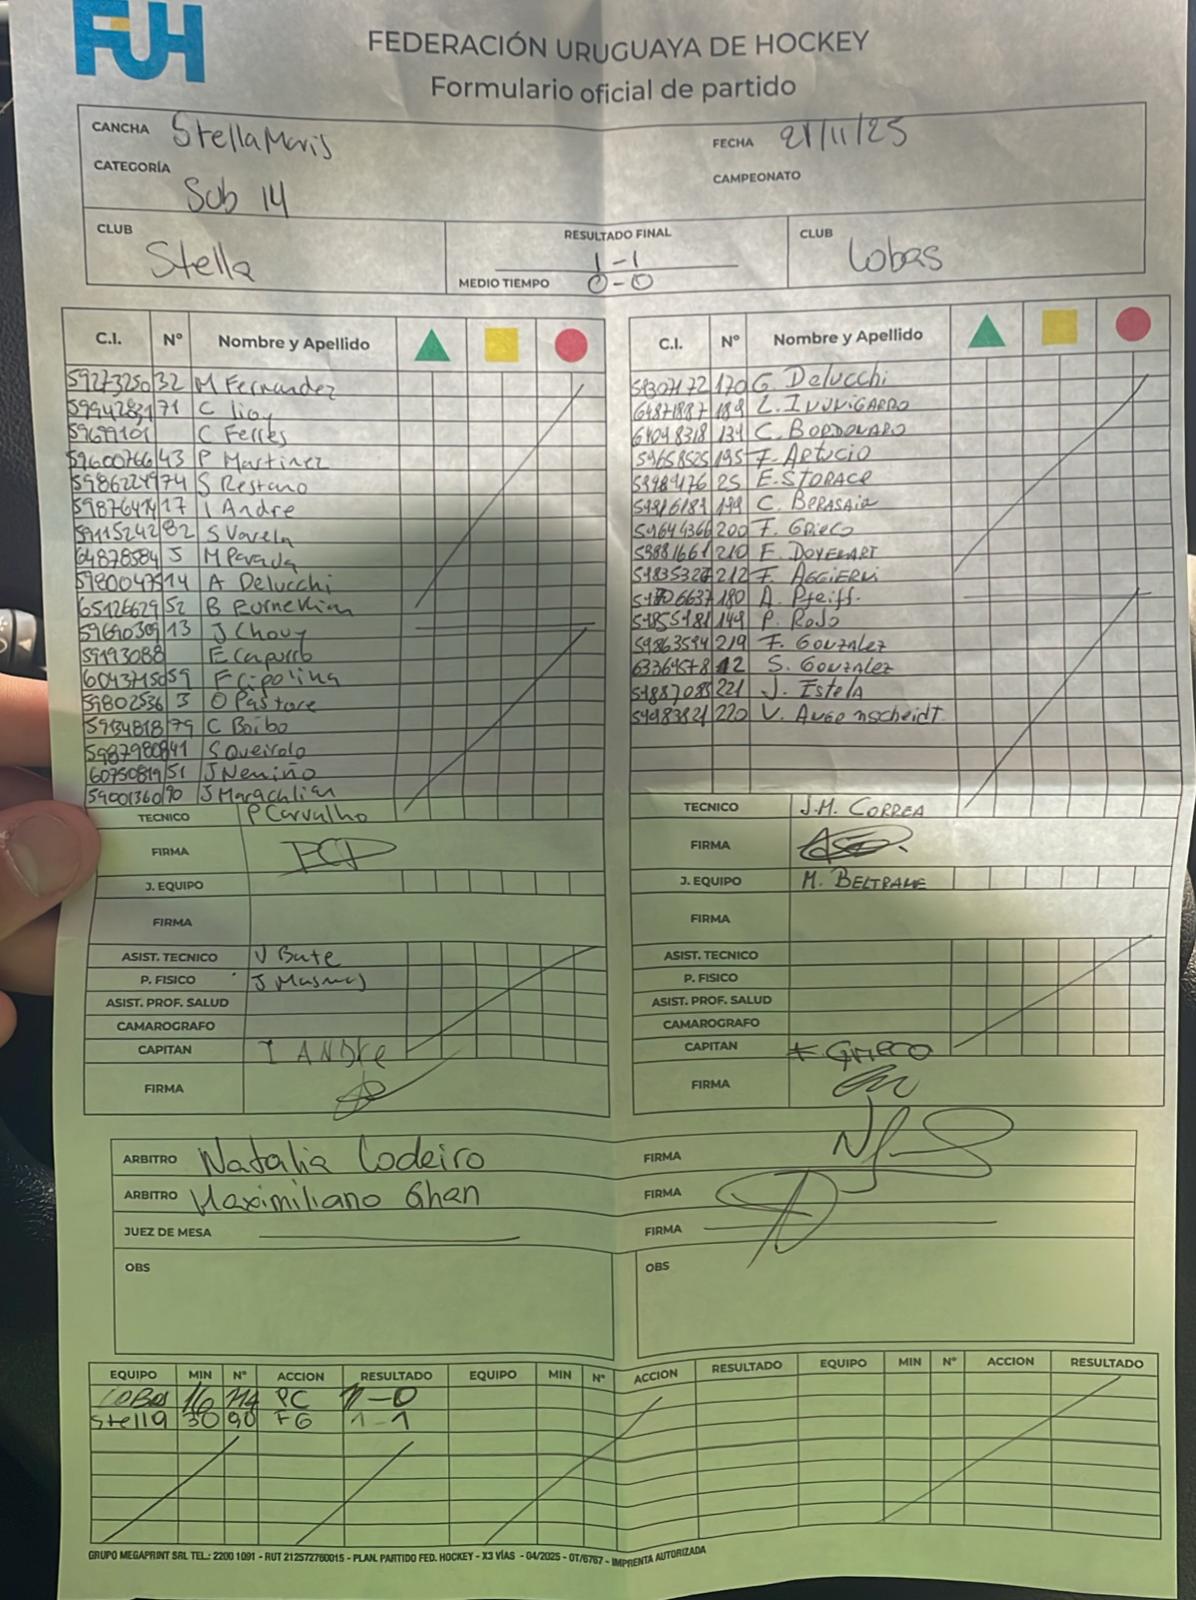 FUH
FEDERACIÓN URUGUAYA DE HOCKEY
Formulario oficial de partido
CANCHA Stella Maris
FECHA 21/11/25
CATEGORÍA Sub 14
CAMPEONATO
CLUB Stella
RESULTADO FINAL 1-1
MEDIO TIEMPO 0-0
CLUB Lobas
C.I. Nº Nombre y Apellido
59273250 32 M Fernandez
71 C
59699101 C Ferres
59600766 43 P Martinez
74 S Restano
17 I Andre
59115242 82 S Varela
64878584 5 M Parada
59800475 14 A Delucchi
65126629 52 B
59690309 13 J Chouy
59193088 E Capurro
59 F Cipolina
59802536 3 O Pastore
59134818 79 C Boibo
59879808 41 S Queirolo
60750819 51 J Nemiño
59001360 90 J Marachlian
TECNICO P Carvalho
FIRMA PCP
J. EQUIPO
FIRMA
ASIST. TECNICO V Bate
P. FISICO J
ASIST. PROF. SALUD
CAMAROGRAFO
CAPITAN I ANDRE
FIRMA
C.I. Nº Nombre y Apellido
58307172 170 G. Delucchi
189 L.
64048318 131 C. BORDONARO
59658525 195 F. ARTUCIO
25 E. STORACE
199 C. BERASAIN
59644366 200 F. GRIECO
59881661 210 F.
59835327 212 F.
180 A. Pfeiff.
149 P. ROJO
59863594 219 F. GONZALEZ
63364578 12 S. GONZALEZ
59887085 221 J. Estela
54983821 220 V.
TECNICO J.M. CORREA
FIRMA
J. EQUIPO M. BELTRAME
FIRMA
ASIST. TECNICO
P. FISICO
ASIST. PROF. SALUD
CAMAROGRAFO
CAPITAN F. GRIECO
FIRMA
ARBITRO Natalia Codeiro
FIRMA
ARBITRO Maximiliano Ghan
FIRMA
JUEZ DE MESA
FIRMA
OBS
OBS
EQUIPO MIN Nº ACCION RESULTADO EQUIPO MIN Nº ACCION RESULTADO EQUIPO MIN Nº ACCION RESULTADO
LOBAS 16 PC 1-0
Stella 30 90 FG 1-1
GRUPO MEGAPRINT SRL TEL.: 2200 1091 - RUT 212572760015 - PLAN. PARTIDO FED. HOCKEY - X3 VÍAS - 04/2025 - OT/6767 - IMPRENTA AUTORIZADA